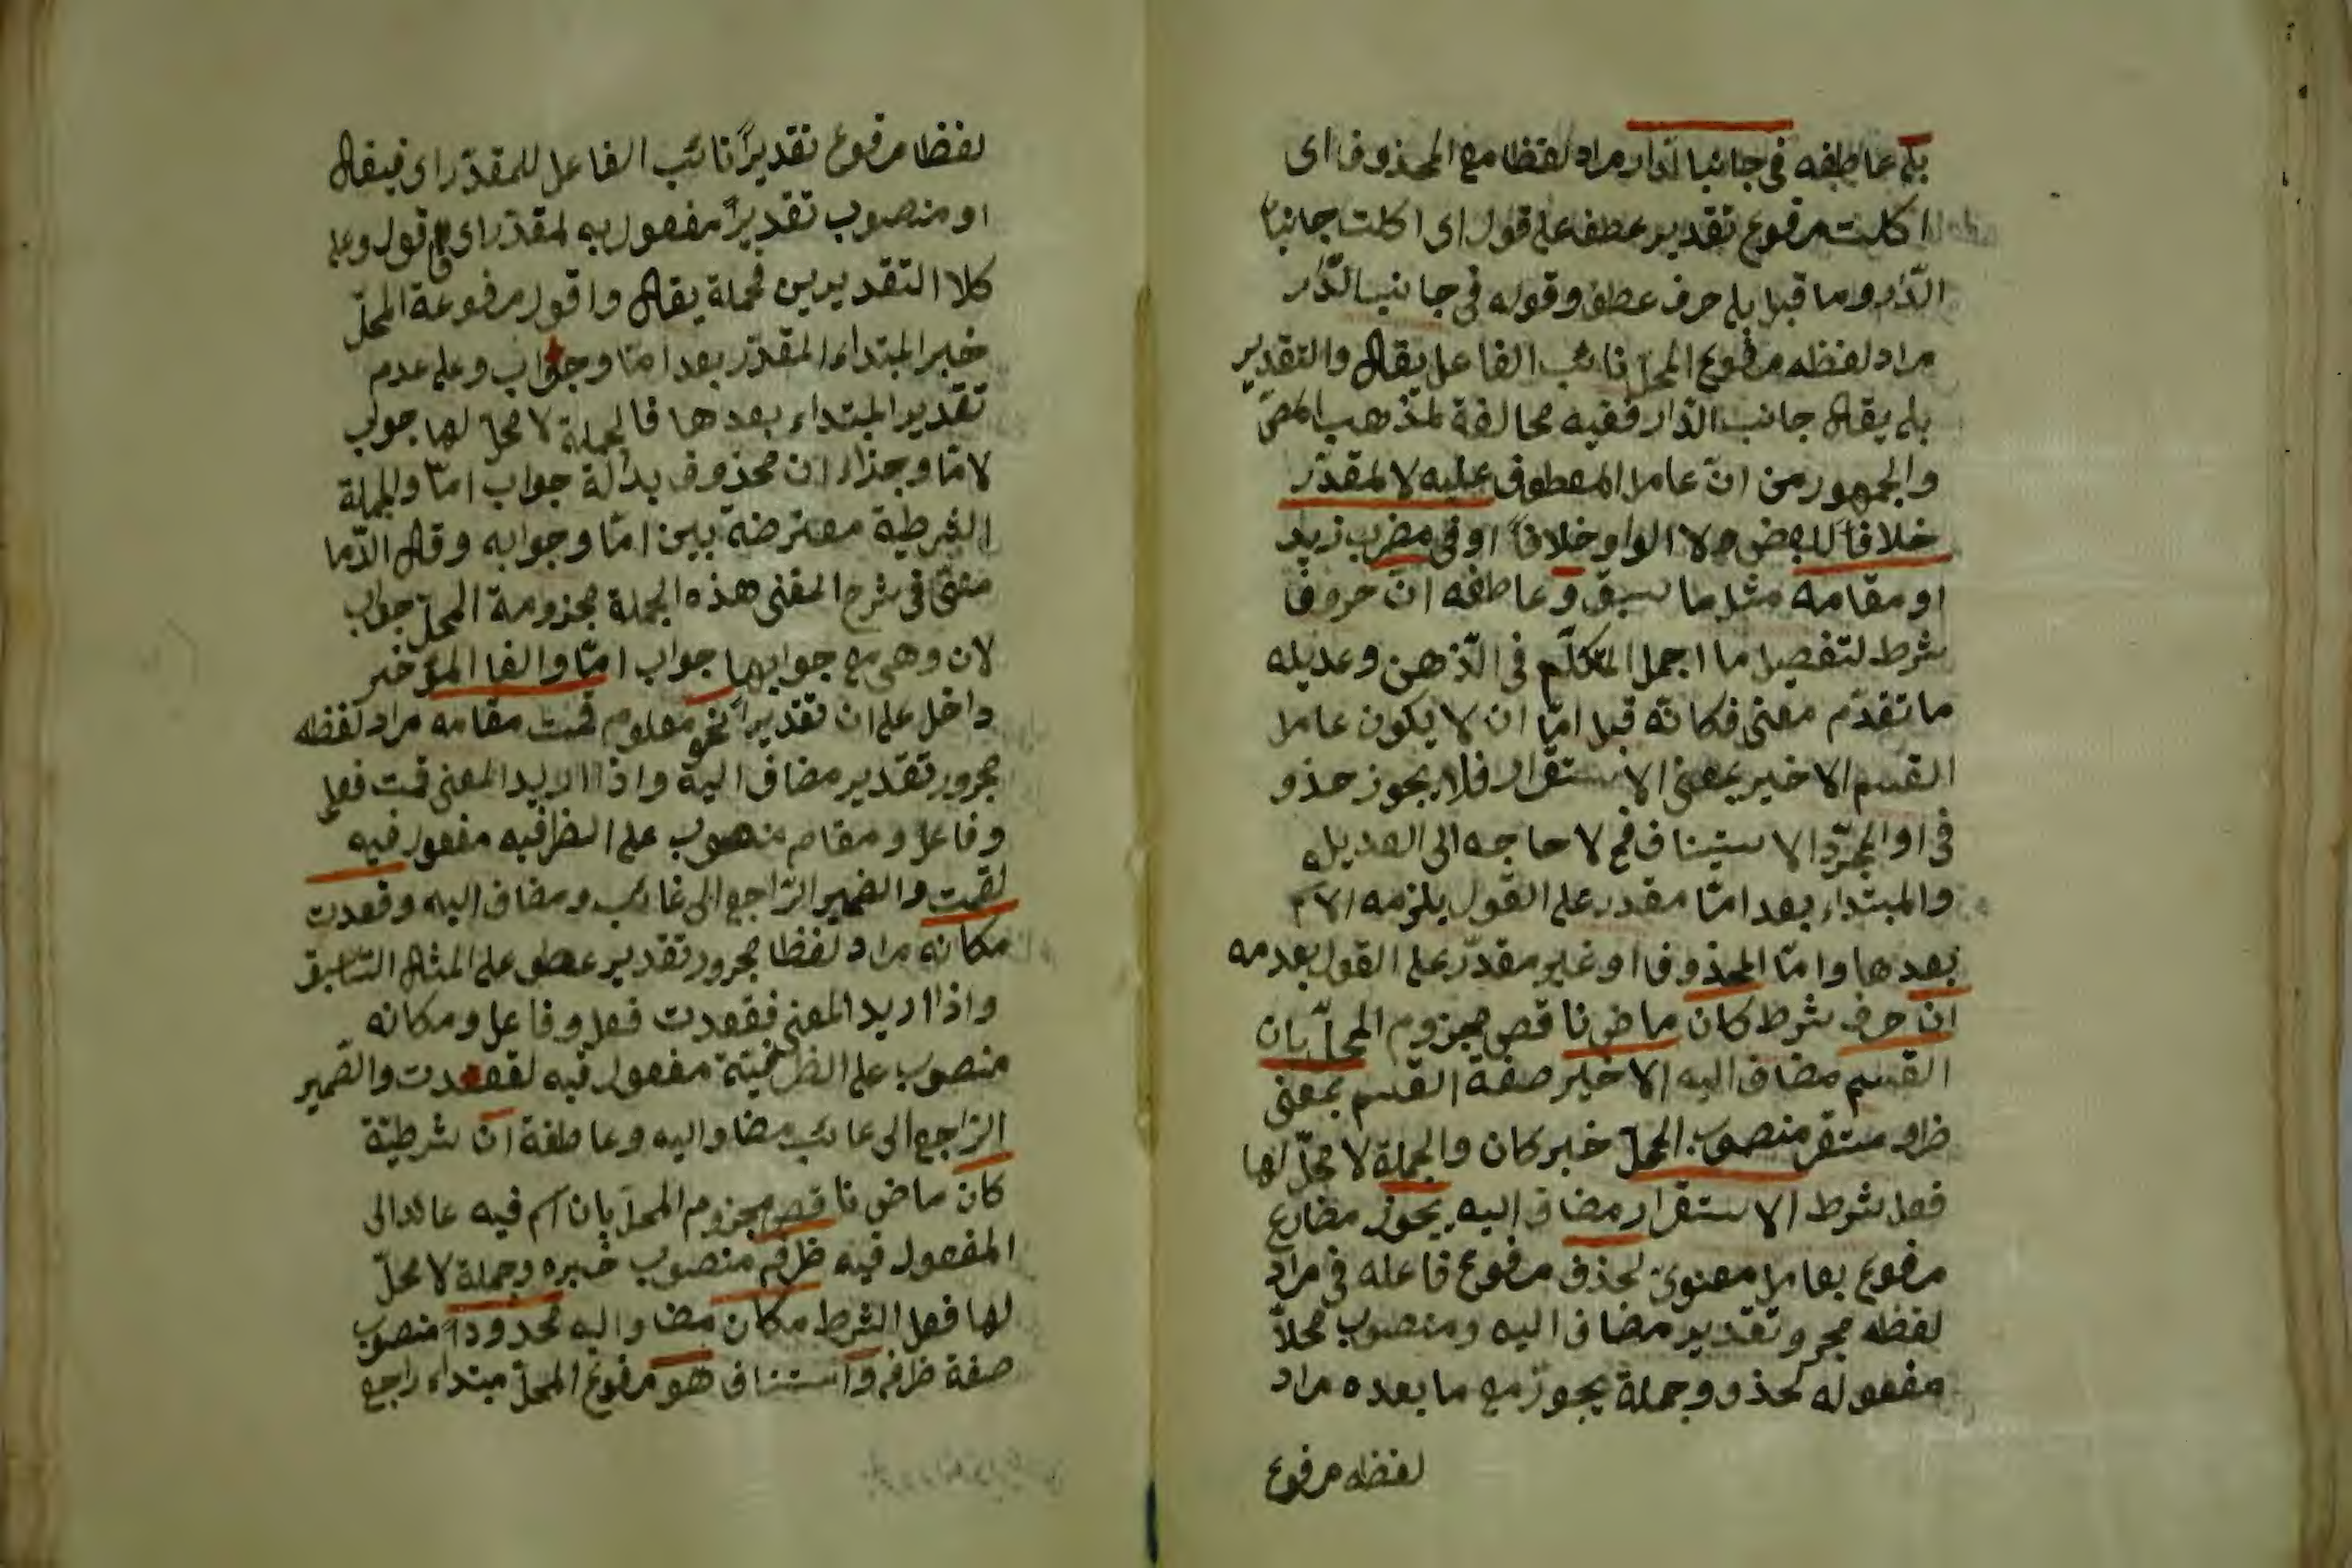 بل عاطفه فى جانبا لدار مراد لفظا مع المحذوف اى
اكلت مرفوع تقدير عطف على قول اى اكلت جانبا
الدّار وما قبل بل حرف عطف وقوله فى جانب الدّار
مراد لفظه مرفوع المحلّ نائب الفاعل يقال والتقدير
بل يقال جانب الدّار ففيه مخالفة لمذهب المص
والجمهور من انّ عامل المعطوف عليه لا لمقدّر
خلافاً للبعض الواو خلافاً او فى زيد
او مقامه مثل ما سبق وعاطفه انّ حروف
شرط لتفصيل ما اجمل المتكلّم فى الذّهن وعديله
ما تقدّم معنى فكانّه قبل امّا ان لا يكون عامل
القسم الاخير بمعنى الاستقرار فلا يجوز حذو
فى او المجرّد الاستيناف فح لا حاجه الى العديل
والمبتداء بعد امّا مقدر على القول يلزمه الاسم
بعدها وامّا المحذوف او غير مقدّر على القول بعدمه
ان حرف شرط كان ماض ناقص مجزوم المحلّ بان
القسم مضاف اليه الاخير صفة القسم بمعنى
ظرف مستقر منصوب المحلّ خبر كان والجملة لا محلّ لها
فعل شرط الاستقرار مضاف اليه يجوز مضارع
مرفوع بعامل معنوى لحذف مرفوع فاعله فى مراد
لفظه مجرو تقدير مضاف اليه ومنصوب محلّاً
مفعوله لحذو وجملة يجوز مع ما بعده مراد
لفظه مرفوع
لفظا مرفوع تقديراً نائب الفاعل للمقدّر اى فيقال
او منصوب تقديراً مفعول به لمقدّر اى قول وعلى
كلا التقديرين فجملة يقال واقول مرفوعة المحلّ
خبر المبتداء المقدّر بعد امّا وجواب وعلى عدم
تقدير المبتداء بعدها فالجملة لا محلّ لها جواب
لامّا وجزاء ان محذوف بدلالة جواب امّا والجملة
الشرطية معترضة بين امّا وجوابه وقال الدّما
مينى فى شرح المغنى هذه الجملة مجزومة المحلّ جواب
لان وهى مع جوابها جواب امّا والفا المؤخر
داخل على ان تقديراً نحو معلوم قمت مقامه مراد لفظه
مجرور تقدير مضاف اليه واذا اريد المعنى قمت فعل
وفاعل ومقام منصوب على الظرفيه مفعول فيه
لقمت والضمير الرّاجع الى غائب ومضاف اليه وقعدت
مكانه مراد لفظا مجرور تقدير عطف على المثال السّابق
واذا اريد المعنى فقعدت فعل وفاعل ومكانه
منصوب على مفعول فيه لقعدت والضّمير
الرّاجع الى غائب مضاف اليه وعاطفة ان شرطيّة
كان ماض ناقص مجزوم المحلّ بان اسم فيه عائد الى
المفعول فيه ظرف منصوب خبره وجملة لا محلّ
لها فعل الشرط مكان مضاف اليه محدوداً منصوب
صفة ظرف واستيناف هو مرفوع المحلّ مبتداء راجع